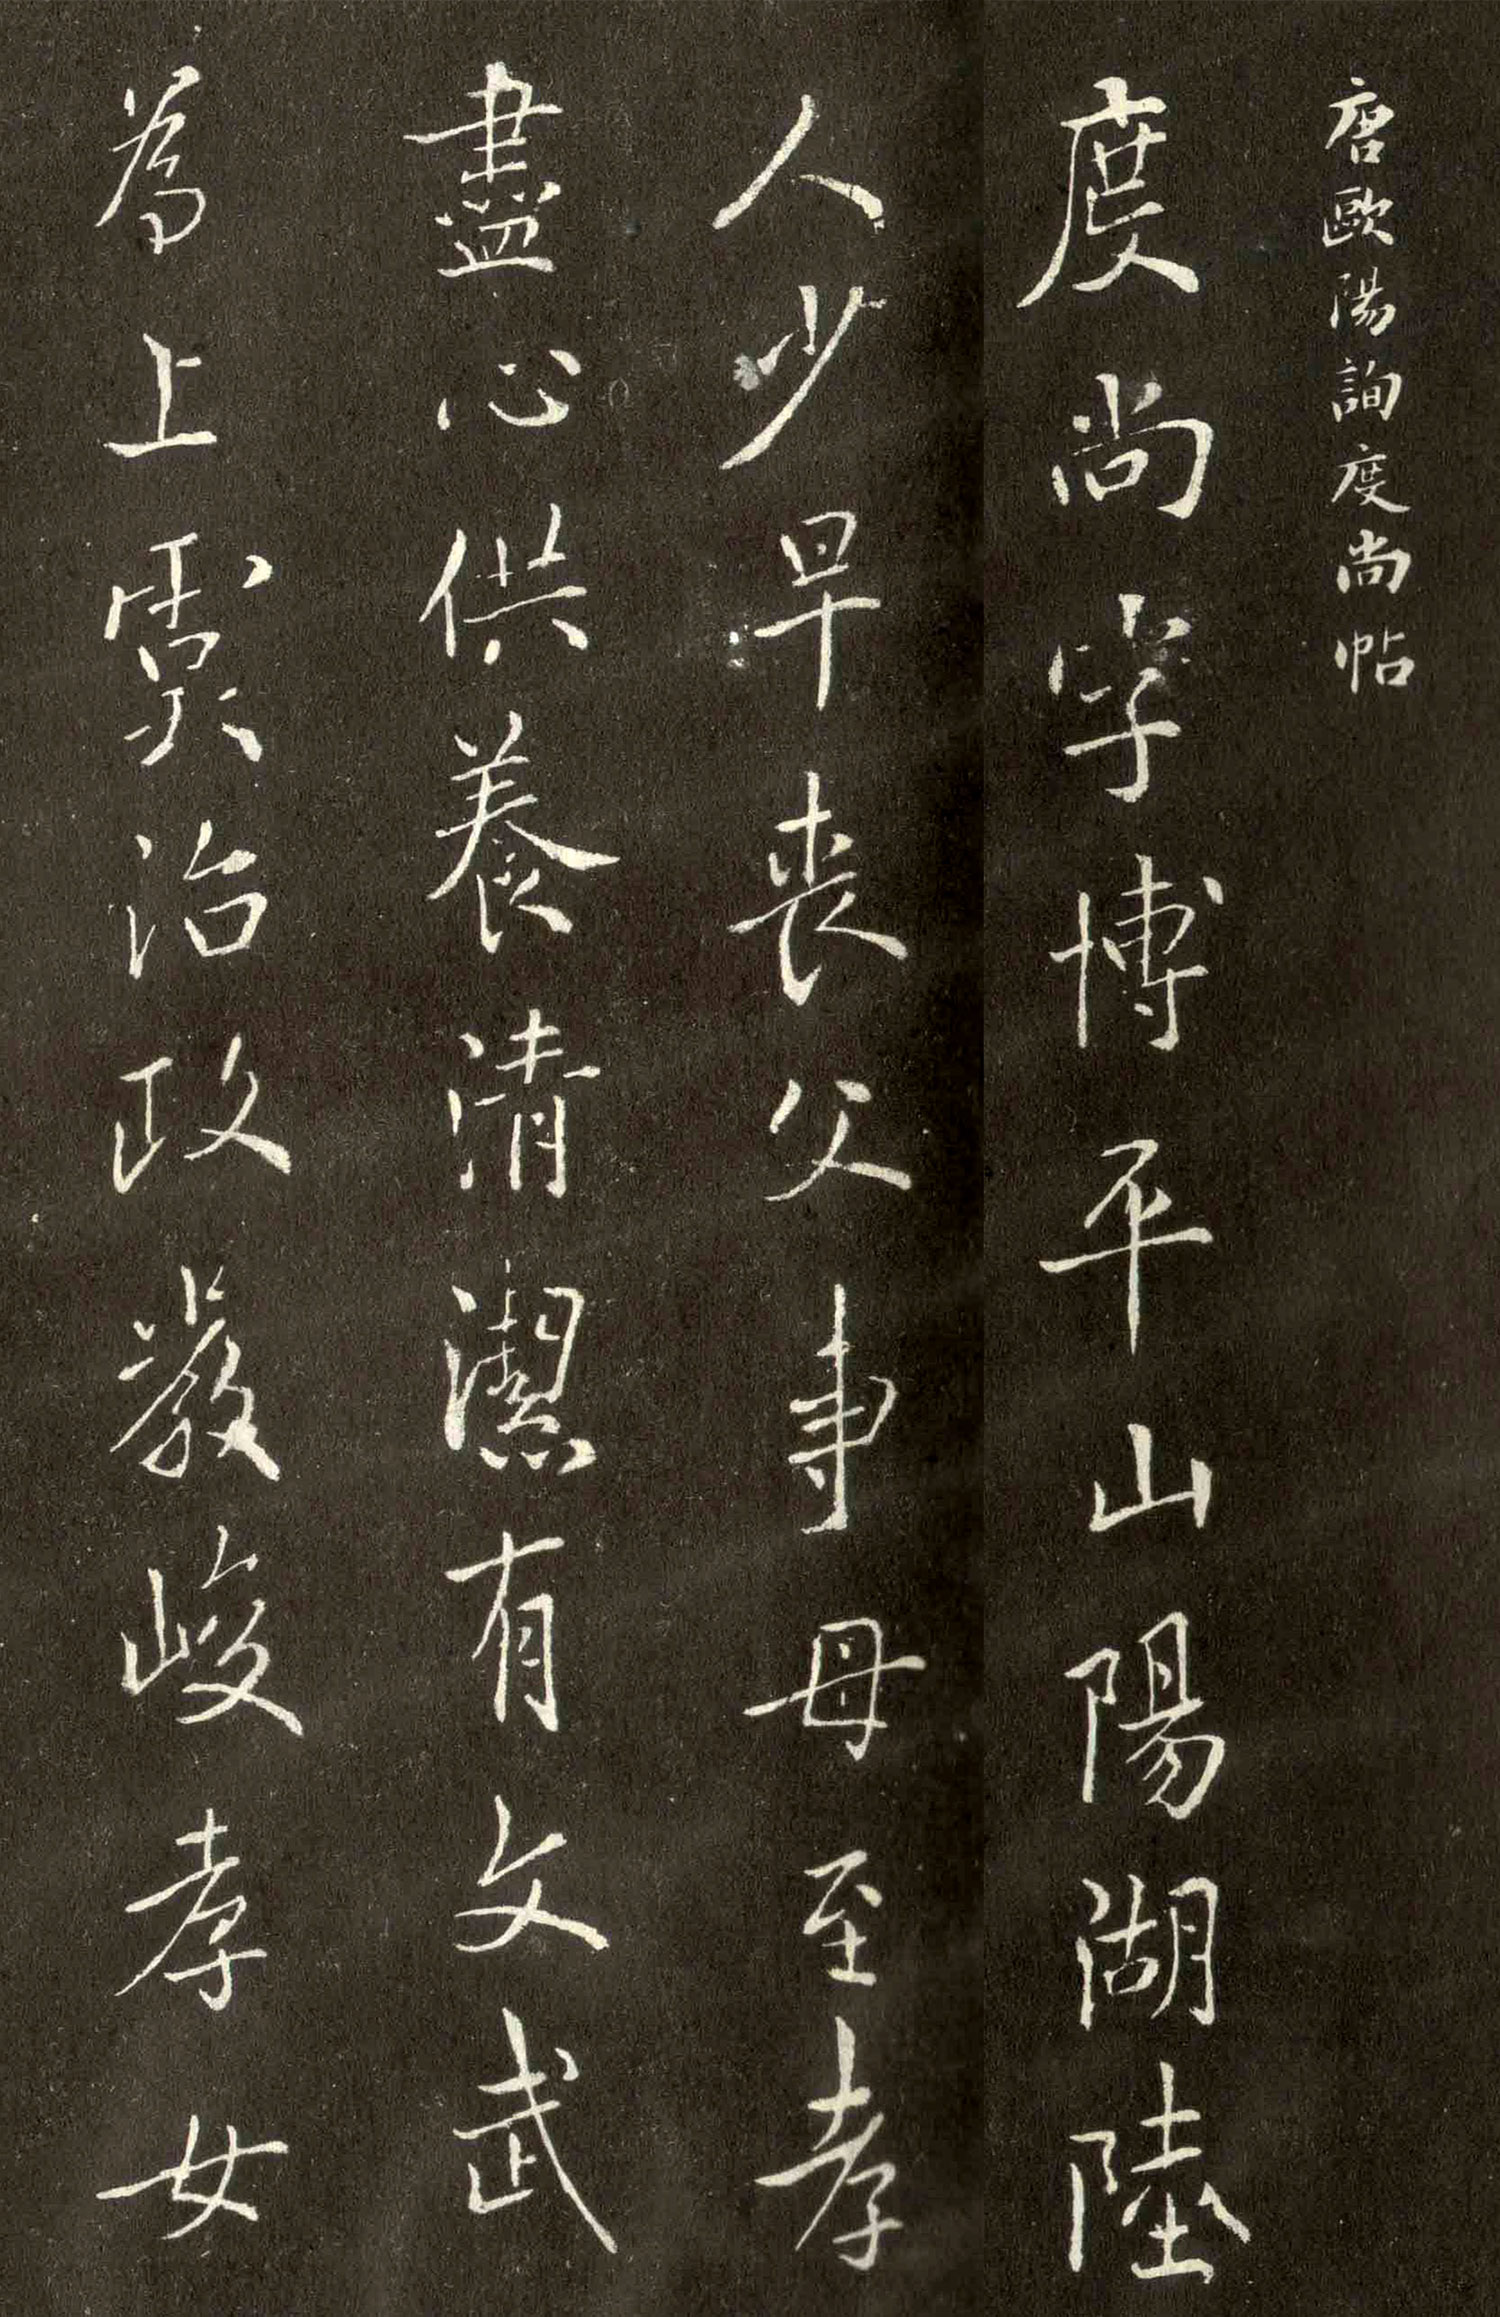 唐歐陽詢度尚帖
度尚字博平山陽湖陸
人少早喪父事母至孝
盡心供養清潔有文武
為上虞治政嚴峻孝女